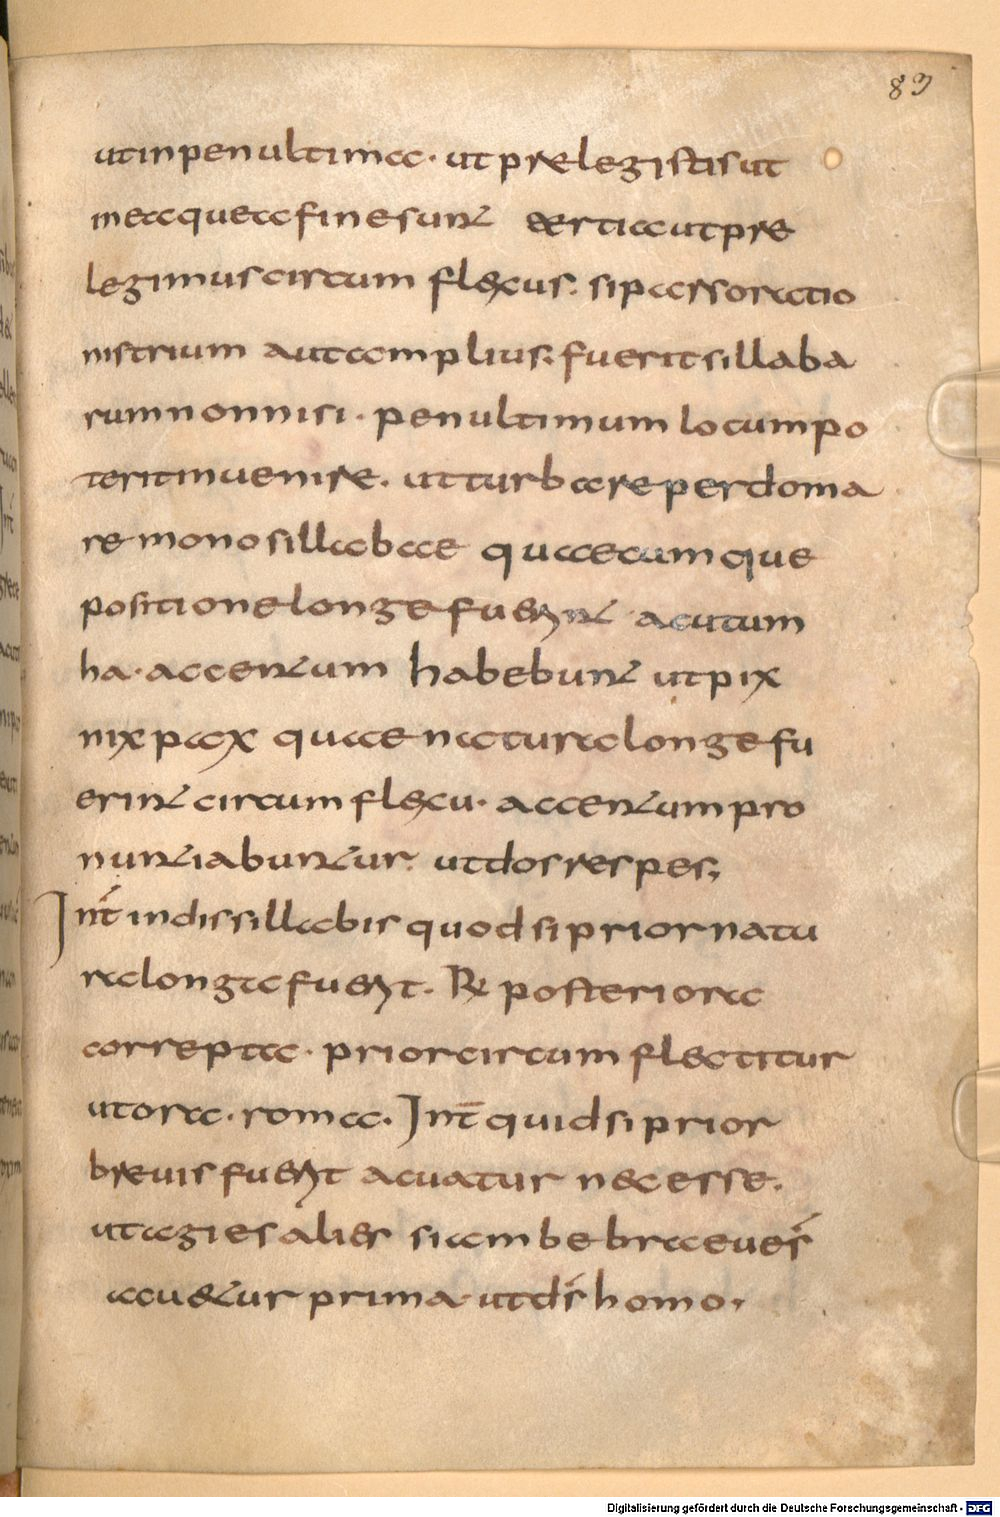 83
utinpenultima· ut prelegistis ut
mea que a fine sunt & ertia ut pre
legimus circumflexus. si passo ratio
nis trium aut amplius; fuerit sillaba
rum non nisi· penultimum locum po
terit invenire. ut turbare perdoma
re monosillabae quaecumque
positione longe fuerint acutum
ha· accentum habebunt ut pix
nix pax quae natura longe fu
erint circumflexu· accentum pro
nuntiabuntur. ut dos res pes;
Int̄ in dissillabis quod si prior natu
ra longa fuerit. R& posteriora
correpta· prior circumflectitur
ut ora· roma. Int̄ quid si prior
brevis fuerit acuatur necesse.
ut agies alier si ambe braeves
acuetur prima· ut ds homo,
Digitalisierung gefördert durch die Deutsche Forschungsgemeinschaft - DFG